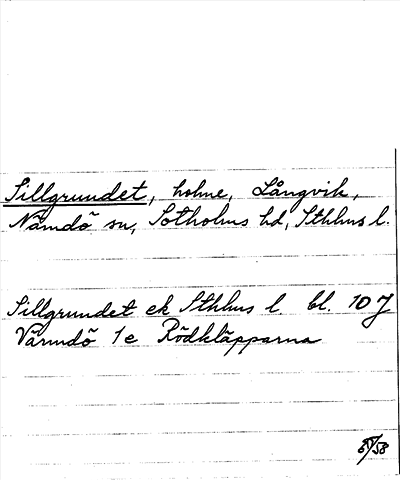 Sillgrundet, holme, Långvik,
Nämdö sn, Sotholms hd, Sthlms l.
Sillgrundet ek Sthlms l. bl. 107
Värmdö 1e Rödkläpparna